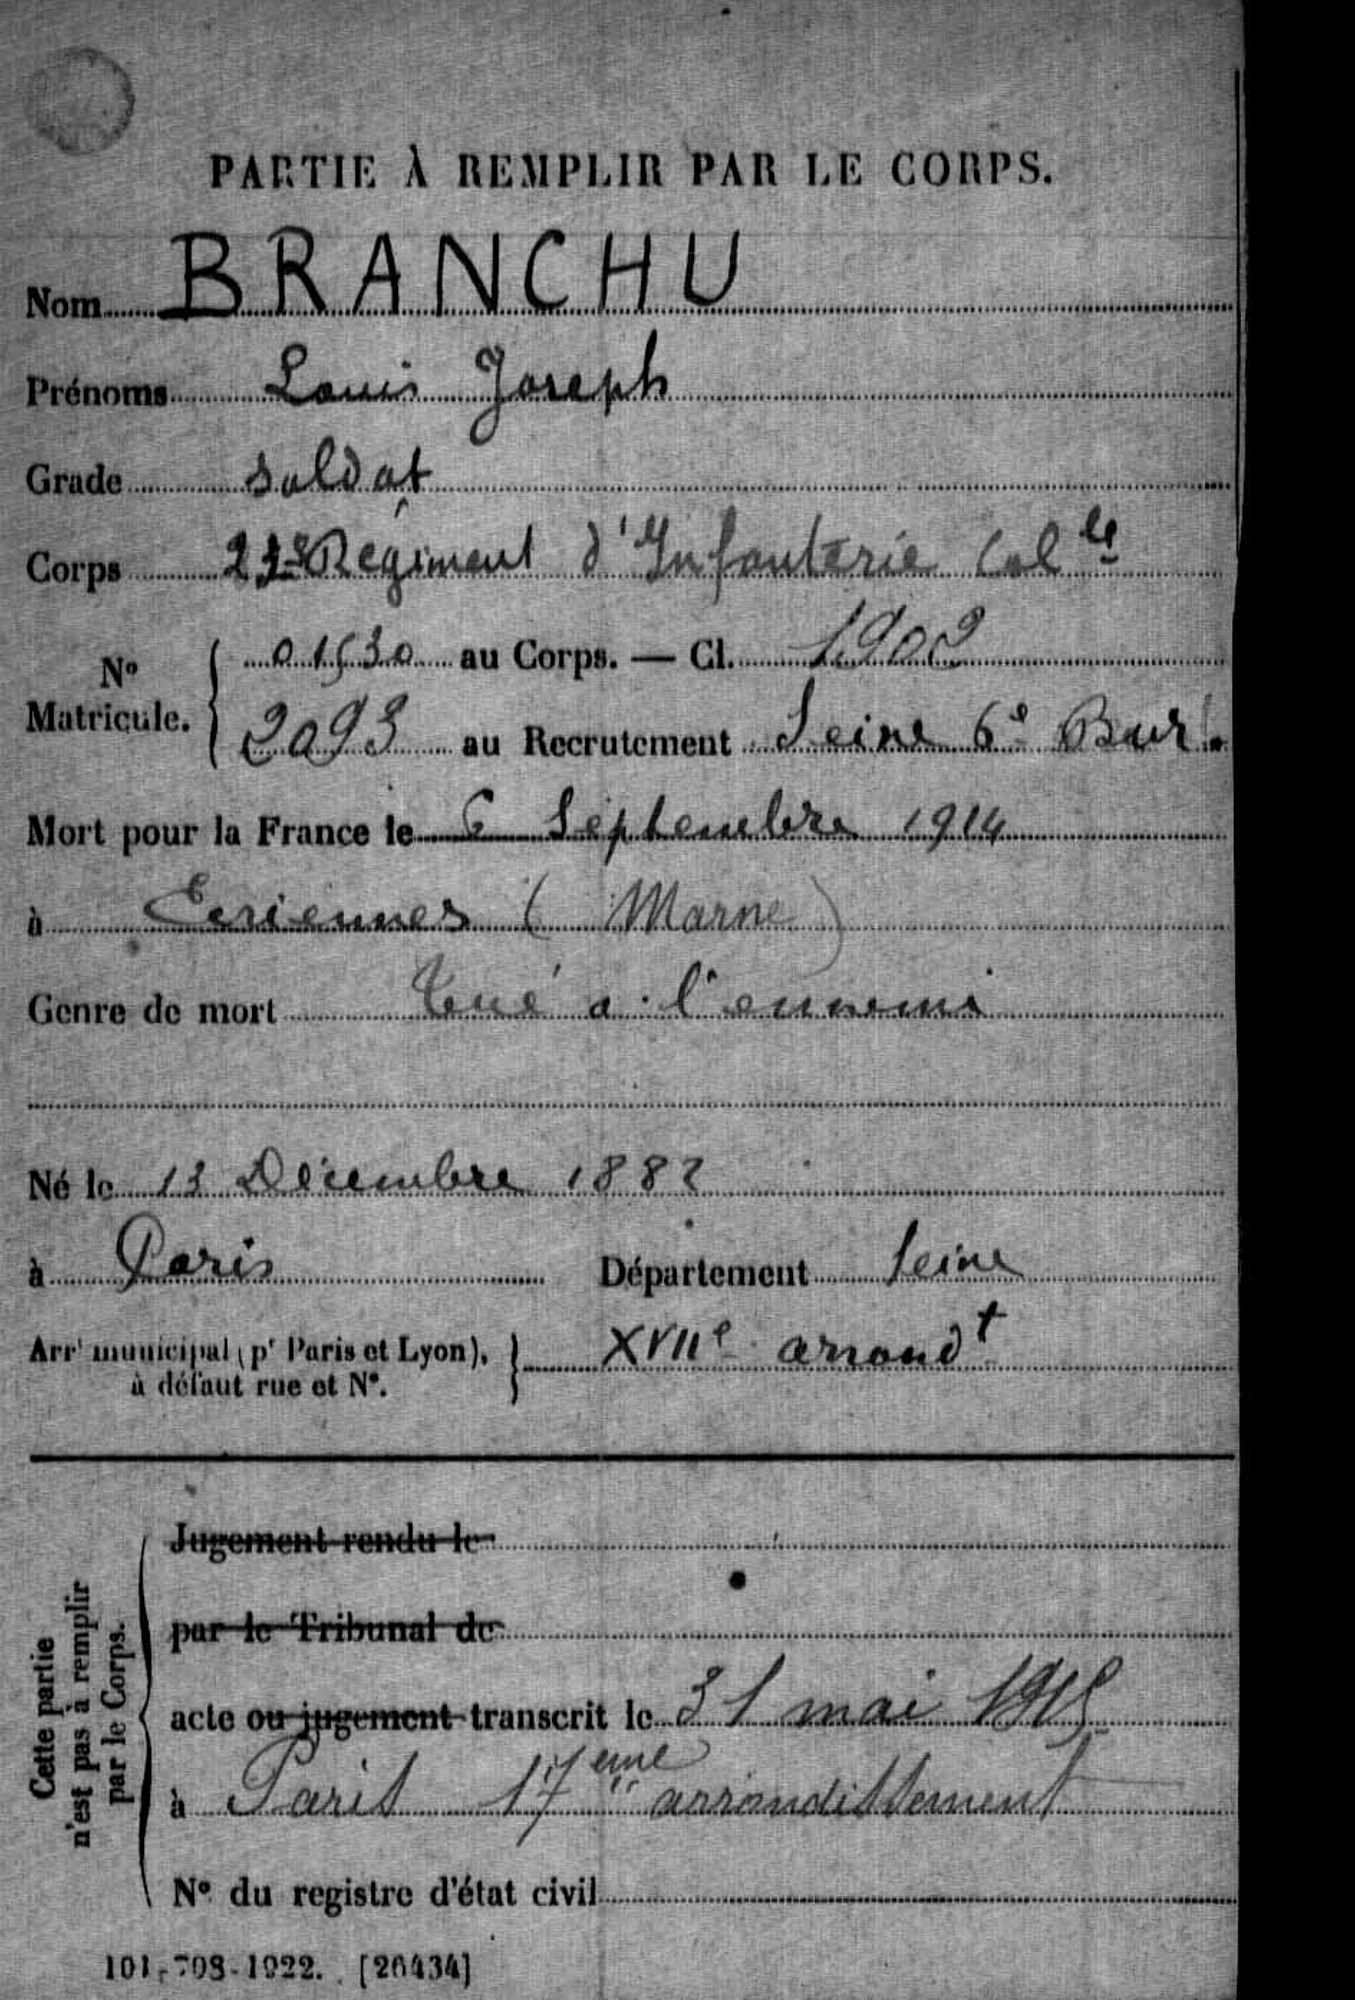 PARTIE À REMPLIR PAR LE CORPS.
Nom BRANCHU
Prénoms Louis Joseph
Grade soldat
Corps Régiment d'Infanterie Col le
N° Matricule. 01530 au Corps. — Cl. 1902
2093 au Recrutement Seine 6e Bur.
Mort pour la France le 6 Septembre 1914
à Ecriennes (Marne)
Genre de mort tué a l'ennemi
Né le 13 Décembre 1882
à Paris Département Seine
Arrt municipal (pr Paris et Lyon), à défaut rue et N°. XVIIe arrondt
Cette partie n'est pas à remplir par le Corps.
Jugement rendu le
par le Tribunal de
acte ou jugement transcrit le 31 mai 1915
à Paris 17eme arrondissement
N° du registre d'état civil
101-708-1922. [26434]